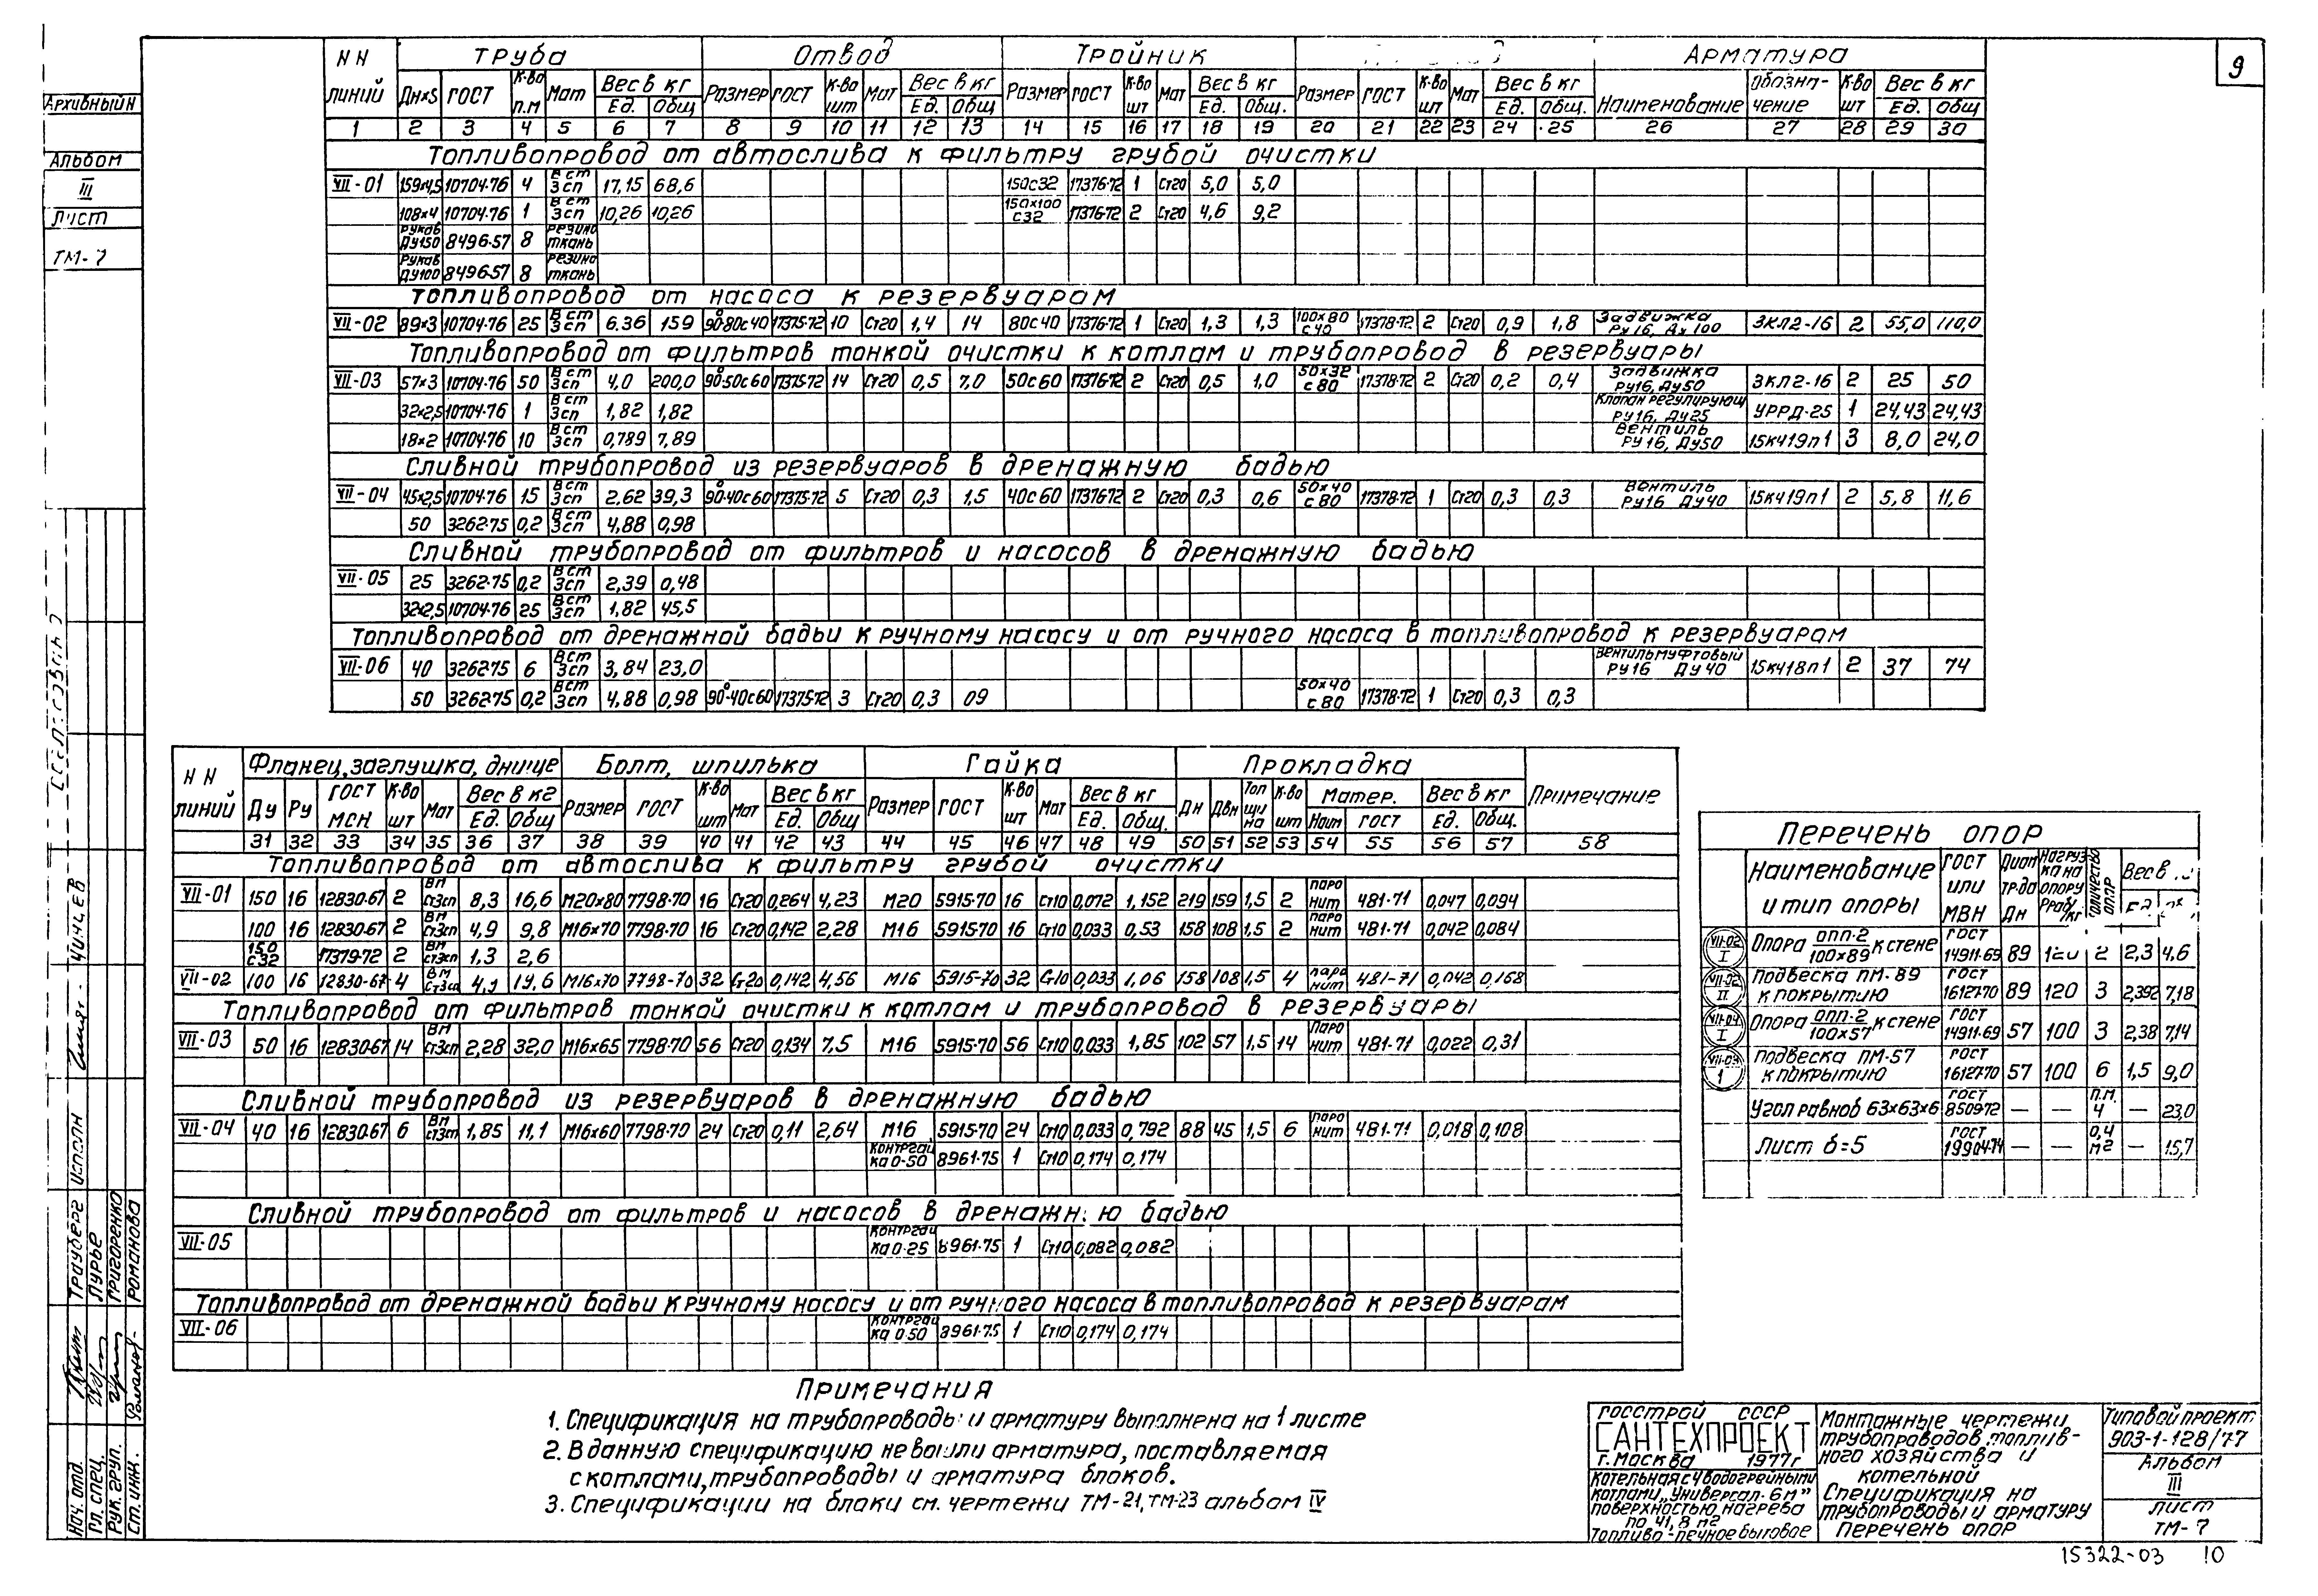 9
Архивный н
Альбом
III
Лист
ТМ-7
НН линий | Труба | Отвод | Тройник | Арматура
Дн×S | ГОСТ | К-во п.м | Мат | Вес в кг Ед. Общ | Размер | ГОСТ | К-во шт | Мат | Вес в кг Ед. Общ | Размер | ГОСТ | К-во шт | Мат | Вес в кг Ед. Общ. | Размер | ГОСТ | К-во шт | Мат | Вес в кг Ед. Общ. | Наименование | Обозначение | К-во шт | Вес в кг Ед. Общ
1 2 3 4 5 6 7 8 9 10 11 12 13 14 15 16 17 18 19 20 21 22 23 24 25 26 27 28 29 30
Топливопровод от автослива к фильтру грубой очистки
VII-01 | 159×4,5 | 10704-76 | 4 | В ст 3сп | 17,15 | 68,6 | 150с32 | 17376-72 | 1 | Ст20 | 5,0 | 5,0
108×4 | 10704-76 | 1 | В ст 3сп | 10,26 | 10,26 | 150×100 с32 | 17376-72 | 2 | Ст20 | 4,6 | 9,2
рукав Ду150 | 8496-57 | 8 | резино ткань
Рукав Ду100 | 8496-57 | 8 | резино ткань
Топливопровод от насоса к резервуарам
VII-02 | 89×3 | 10704-76 | 25 | В ст 3сп | 6.36 | 159 | 90°-80с40 | 17375-72 | 10 | Ст20 | 1,4 | 14 | 80с40 | 17376-72 | 1 | Ст20 | 1,3 | 1,3 | 100×80 с40 | 17378-72 | 2 | Ст20 | 0,9 | 1,8 | Задвижка Ру16, Ду100 | 3КЛ2-16 | 2 | 55,0 | 110,0
Топливопровод от фильтров тонкой очистки к котлам и трубопровод в резервуары
VII-03 | 57×3 | 10704-76 | 50 | В ст 3сп | 4,0 | 200,0 | 90°-50с60 | 17375-72 | 14 | Ст20 | 0,5 | 7,0 | 50с60 | 17376-72 | 2 | Ст20 | 0,5 | 1,0 | 50×32 с80 | 17378-72 | 2 | Ст20 | 0,2 | 0,4 | Задвижка Ру16, Ду50 | 3КЛ2-16 | 2 | 25 | 50
32×2,5 | 10704-76 | 1 | В ст 3сп | 1,82 | 1,82 | Клапан регулирующ Ру16, Ду25 | УРРД-25 | 1 | 24,43 | 24,43
18×2 | 10704-76 | 10 | В ст 3сп | 0,789 | 7,89 | Вентиль Ру16, Ду50 | 15кч19п1 | 3 | 8,0 | 24,0
Сливной трубопровод из резервуаров в дренажную бадью
VII-04 | 45×2,5 | 10704-76 | 15 | В ст 3сп | 2.62 | 39,3 | 90°-40с60 | 17375-72 | 5 | Ст20 | 0,3 | 1,5 | 40с60 | 17376-72 | 2 | Ст20 | 0,3 | 0,6 | 50×40 с80 | 17378-72 | 1 | Ст20 | 0,3 | 0,3 | Вентиль Ру16 Ду40 | 15кч19п1 | 2 | 5,8 | 11,6
50 | 3262-75 | 0,2 | В ст 3сп | 4,88 | 0,98
Сливной трубопровод от фильтров и насосов в дренажную бадью
VII-05 | 25 | 3262-75 | 0,2 | В ст 3сп | 2,39 | 0,48
32×2,5 | 10704-76 | 25 | В ст 3сп | 1,82 | 45,5
Топливопровод от дренажной бадьи к ручному насосу и от ручного насоса в топливопровод к резервуарам
VII-06 | 40 | 3262-75 | 6 | В ст 3сп | 3,84 | 23,0 | Вентиль муфтовый Ру16 Ду40 | 15кч18п1 | 2 | 37 | 74
50 | 3262-75 | 0,2 | В ст 3сп | 4,88 | 0,98 | 90°-40с60 | 17375-72 | 3 | Ст20 | 0,3 | 09 | 50×40 с80 | 17378-72 | 1 | Ст20 | 0,3 | 0,3
НН линий | Фланец, заглушка, днище | Болт, шпилька | Гайка | Прокладка | Примечание
Ду | Ру | ГОСТ МСН | К-во шт | Мат | Вес в кг Ед. Общ | Размер | ГОСТ | К-во шт | Мат | Вес в кг Ед. Общ | Размер | ГОСТ | К-во шт | Мат | Вес в кг Ед. Общ. | Дн | Двн | Толщина | К-во шт | Матер. Наим ГОСТ | Вес в кг Ед. Общ.
31 32 33 34 35 36 37 38 39 40 41 42 43 44 45 46 47 48 49 50 51 52 53 54 55 56 57 58
Топливопровод от автослива к фильтру грубой очистки
VII-01 | 150 | 16 | 12830-67 | 2 | ВМ Ст3сп | 8,3 | 16,6 | М20×80 | 7798-70 | 16 | Ст20 | 0,264 | 4,23 | М20 | 5915-70 | 16 | Ст10 | 0,072 | 1,152 | 219 | 159 | 1,5 | 2 | паронит | 481-71 | 0,047 | 0,094
100 | 16 | 12830-67 | 2 | ВМ Ст3сп | 4,9 | 9,8 | М16×70 | 7798-70 | 16 | Ст20 | 0,142 | 2,28 | М16 | 5915-70 | 16 | Ст10 | 0,033 | 0,53 | 158 | 108 | 1,5 | 2 | паронит | 481-71 | 0,042 | 0,084
150 с32 | 17379-72 | 2 | ВМ ст3сп | 1,3 | 2,6
VII-02 | 100 | 16 | 12830-67 | 4 | ВМ Ст3сп | 4,9 | 19,6 | М16×70 | 7798-70 | 32 | Ст20 | 0,142 | 4,56 | М16 | 5915-70 | 32 | Ст10 | 0,033 | 1,06 | 158 | 108 | 1,5 | 4 | паронит | 481-71 | 0,042 | 0,168
Топливопровод от фильтров тонкой очистки к котлам и трубопровод в резервуары
VII-03 | 50 | 16 | 12830-67 | 14 | ВМ Ст3сп | 2,28 | 32,0 | М16×65 | 7798-70 | 56 | Ст20 | 0,134 | 7,5 | М16 | 5915-70 | 56 | Ст10 | 0,033 | 1,85 | 102 | 57 | 1,5 | 14 | Паронит | 481-71 | 0,022 | 0,31
Сливной трубопровод из резервуаров в дренажную бадью
VII-04 | 40 | 16 | 12830-67 | 6 | ВМ Ст3сп | 1,85 | 11,1 | М16×60 | 7798-70 | 24 | Ст20 | 0,11 | 2,64 | М16 | 5915-70 | 24 | Ст10 | 0,033 | 0,792 | 88 | 45 | 1,5 | 6 | паронит | 481-71 | 0,018 | 0,108
контргайка 0-50 | 8961-75 | 1 | Ст10 | 0,174 | 0,174
Сливной трубопровод от фильтров и насосов в дренажн ю бадью
VII-05 | контргайка 0-25 | 8961-75 | 1 | Ст10 | 0,082 | 0,082
Топливопровод от дренажной бадьи к ручному насосу и от ручного насоса в топливопровод к резервуарам
VII-06 | контргайка 0-50 | 8961-75 | 1 | Ст10 | 0,174 | 0,174
Перечень опор
Наименование и тип опоры | ГОСТ или МВН | Диам тр-да Дн | Нагрузка на опору Рраб/кг | Количество опор | Вес в
VII-02 I | Опора ОПП-2 100×89 к стене | ГОСТ 14911-69 | 89 | 120 | 2 | 2,3 | 4,6
VII-02 II | Подвеска ПМ-89 к покрытию | ГОСТ 16127-70 | 89 | 120 | 3 | 2,392 | 7,18
VII-04 I | Опора ОПП-2 100×57 к стене | ГОСТ 14911-69 | 57 | 100 | 3 | 2,38 | 7,14
VII-03 1 | Подвеска ПМ-57 к покрытию | ГОСТ 16127-70 | 57 | 100 | 6 | 1,5 | 9,0
Угол равноб 63×63×6 | ГОСТ 8509-72 | — | — | п.м. 4 | — | 23,0
Лист δ=5 | ГОСТ 19904-74 | — | — | 0,4 м2 | — | 15,7
Примечания
1. Спецификация на трубопроводы и арматуру выполнена на 1 листе
2. В данную спецификацию не вошли арматура, поставляемая
с котлами, трубопроводы и арматура блоков.
3. Спецификации на блоки см. чертежи ТМ-21, ТМ-23 альбом IV
Нач. отд. Трауберг
Гл. спец. Лурье
Рук. груп. Григоренко
Ст. инж. Романова
Исполн
Госстрой СССР
САНТЕХПРОЕКТ
г. Москва 1977г
Котельная с 4 водогрейными
котлами „Универсал-6М”
поверхностью нагрева
по 41,8 м2
Топливо-печное бытовое
Монтажные чертежи
трубопроводов топлив-
ного хозяйства и
котельной
Спецификация на
трубопроводы и арматуру
Перечень опор
Типовой проект
903-1-128/77
Альбом
III
Лист
ТМ-7
15322-03 10